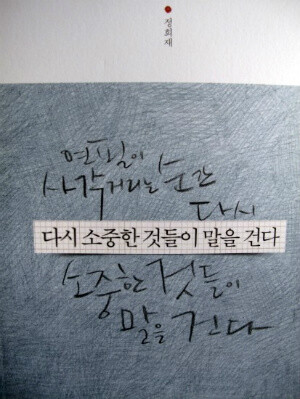 정희재
연필이
사각거리는 순간
다시
다시 소중한 것들이 말을 건다
소중한 것들이
말을 건다